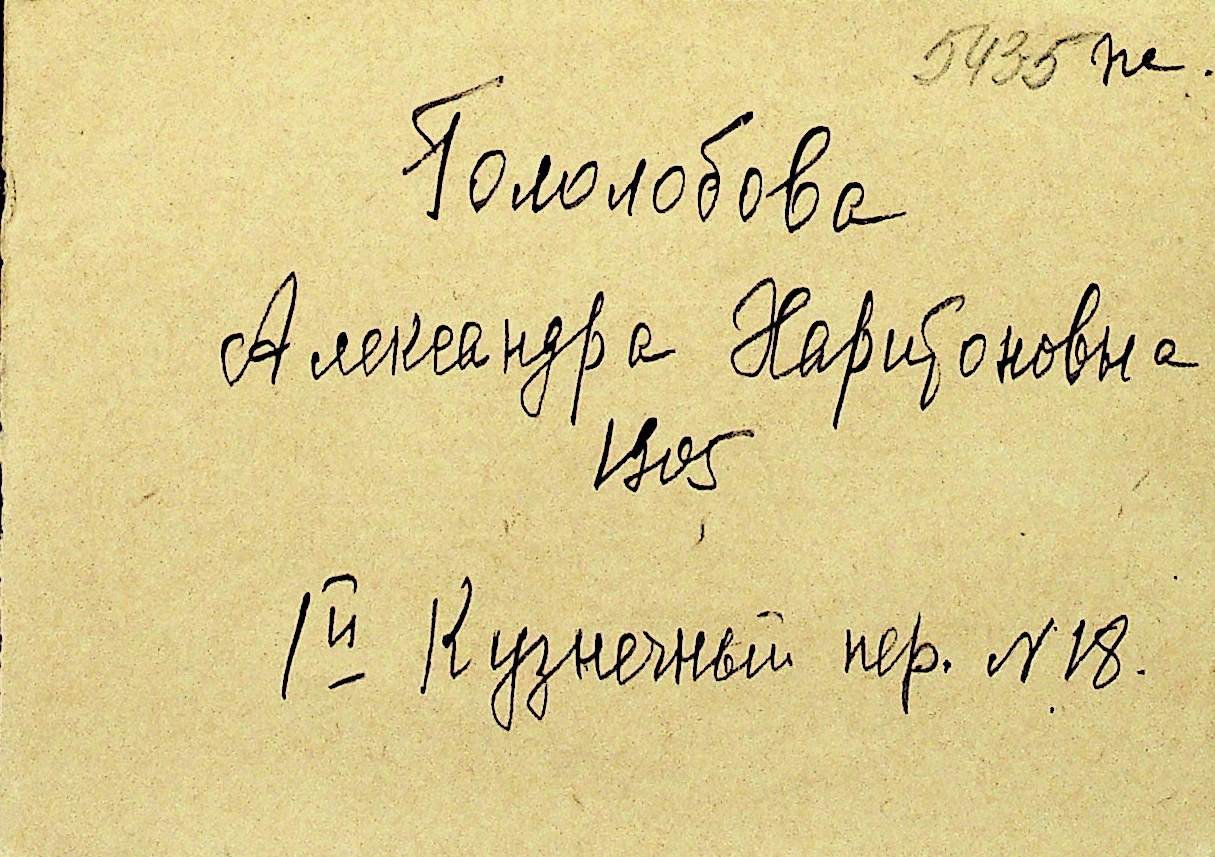 5435 пе.
Гололобова
Александра Харитоновна
1905
1й Кузнечный пер. N 18.